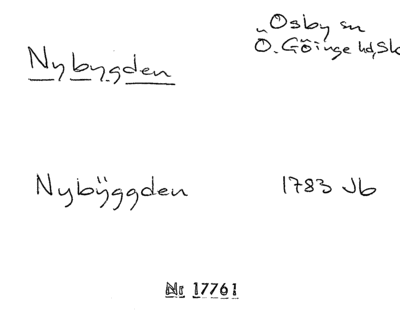 Nybygden
Osby sn
Ö. Göinge hd, Sk
Nybÿggden 1783 Jb
Nr 17761